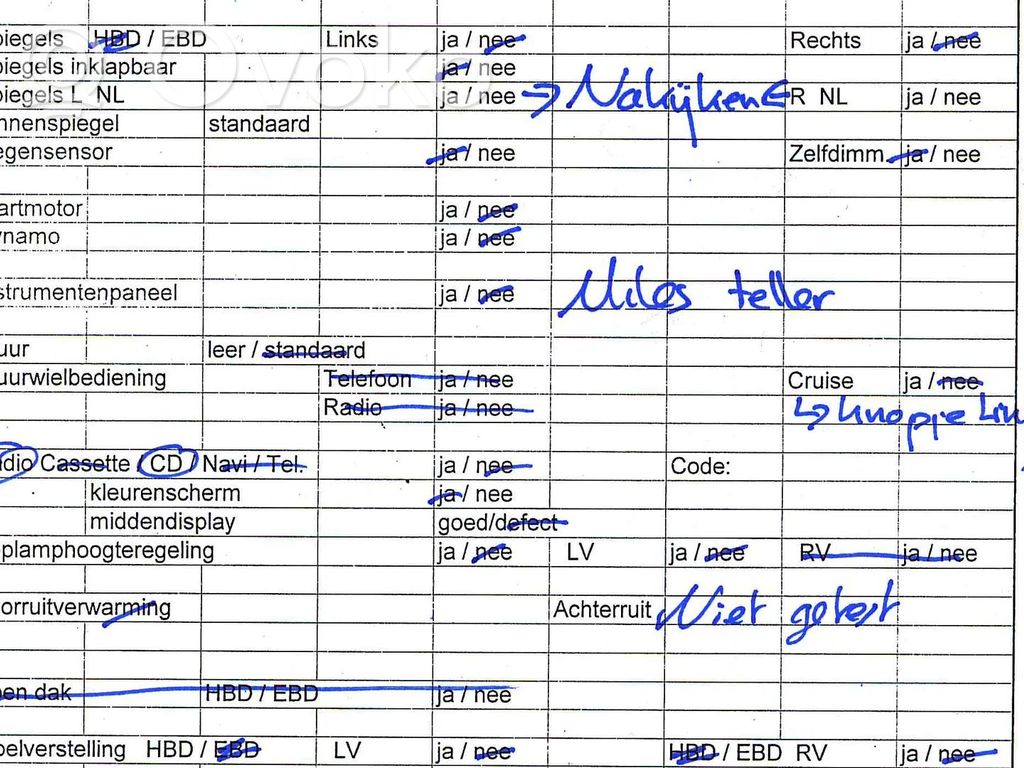 piegels HBD / EBD Links ja / nee Rechts ja / nee
piegels inklapbaar ja / nee
piegels L NL ja / nee → Nakijken ← R NL ja / nee
nnenspiegel standaard
egensensor ja / nee Zelfdimm. ja / nee
artmotor ja / nee
ynamo ja / nee
strumentenpaneel ja / nee Miles teller
uur leer / standaard
uurwielbediening Telefoon ja / nee Cruise ja / nee
Radio ja / nee ↳ knopje Lin
dio Cassette / CD / Navi / Tel. ja / nee Code:
kleurenscherm ja / nee
middendisplay goed/defect
plamphoogteregeling ja / nee LV ja / nee RV ja / nee
orruitverwarming Achterruit Niet getest
en dak HBD / EBD ja / nee
elverstelling HBD / EBD LV ja / nee HBD / EBD RV ja / nee